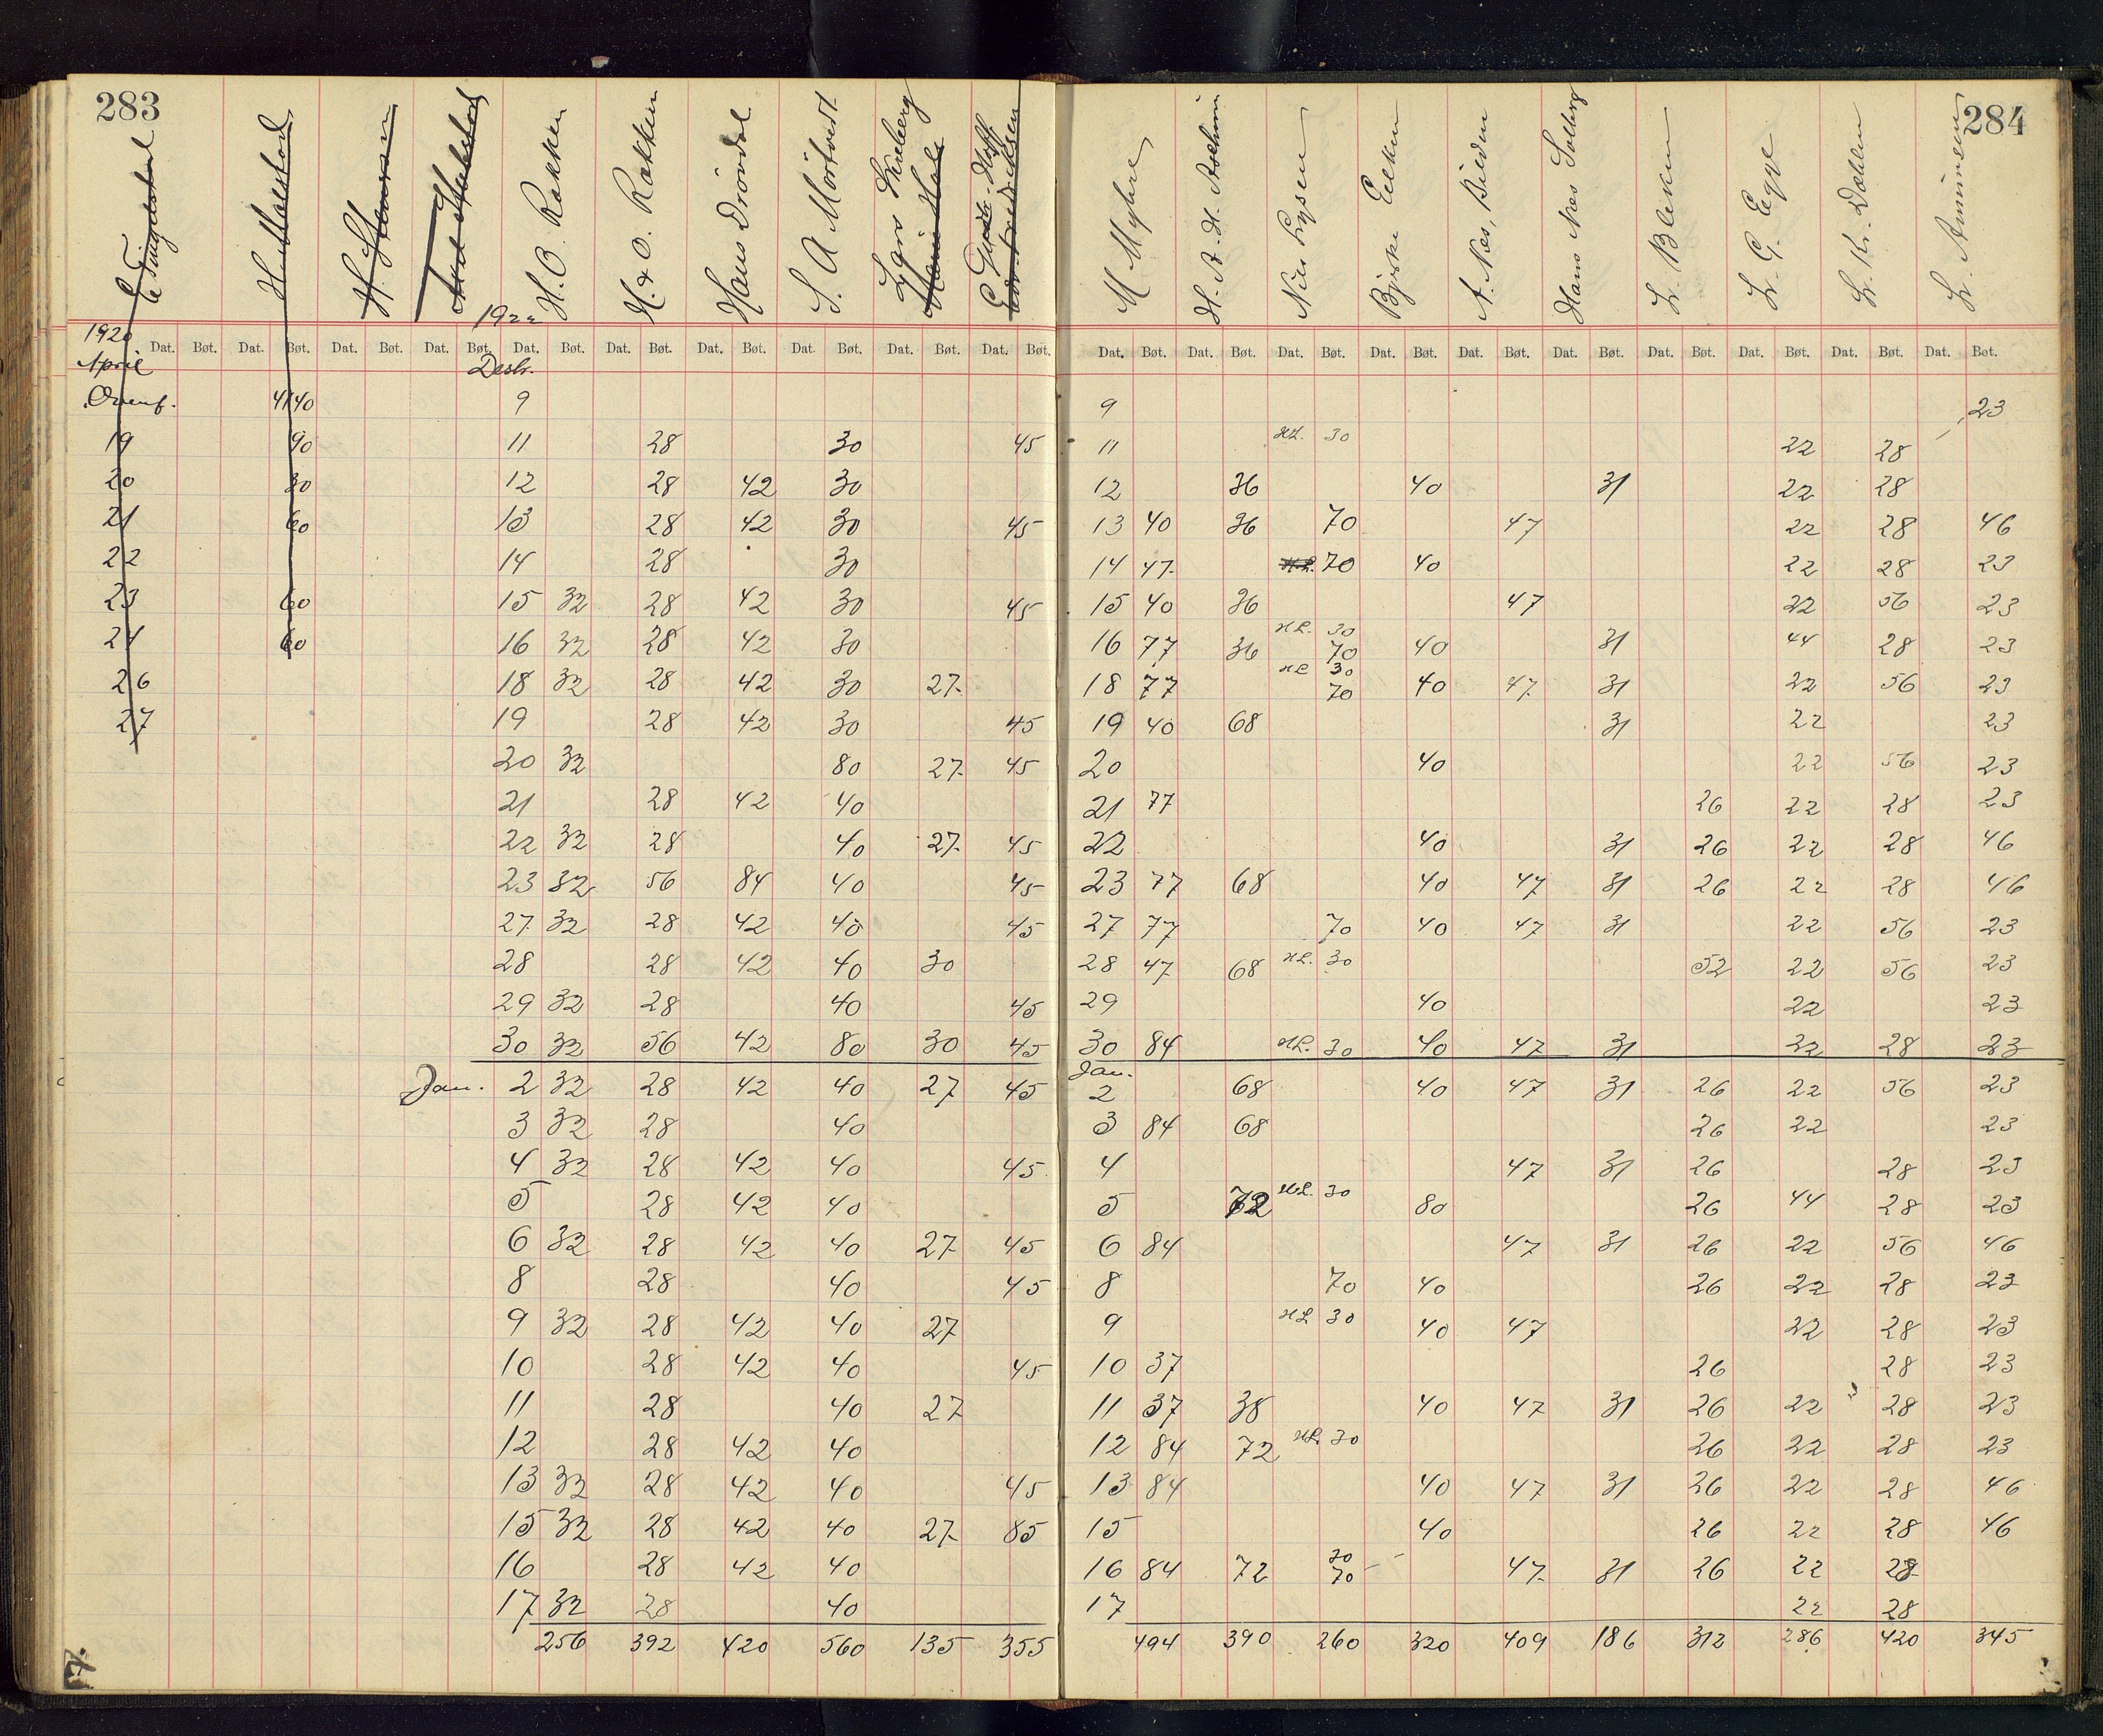 283
284
H. Stensrud
H. O. Rakken
H. & O. Rakken
Hans
S. A. Mortvedt
Lars
M Myhre
H. A. H.
Nils Lysen
Bjerke
A. Nes,
Hans Nes Solberg
L. Bleken
L. G. Egge
L. Kr. Dahlen
L. Amunsen
1920 1922
Dat. Bøt. Dat. Bøt. Dat. Bøt. Dat. Bøt. Dat. Bøt. Dat. Bøt. Dat. Bøt. Dat. Bøt. Dat. Bøt. Dat. Bøt. Dat. Bøt. Dat. Bøt. Dat. Bøt. Dat. Bøt. Dat. Bøt. Dat. Bøt. Dat. Bøt. Dat. Bøt. Dat. Bøt. Dat. Bøt.
April Desbr.
Overf. 4140 9 9 23
19 90 11 28 30 45 11 HL. 30 22 28
20 30 12 28 42 30 12 36 40 31 22 28
21 60 13 28 42 30 45 13 40 36 70 47 22 28 46
22 14 28 30 14 47 HL. 70 40 22 28 23
23 60 15 32 28 42 30 45 15 40 36 47 22 56 23
24 60 16 32 28 42 30 16 77 36 HL. 30 70 40 31 44 28 23
26 18 32 28 42 30 27 18 77 HL 30 70 40 47 31 22 56 23
27 19 28 42 30 45 19 40 68 31 22 23
20 32 80 27 45 20 40 22 56 23
21 28 42 40 21 77 26 22 28 23
22 32 28 40 27 45 22 40 31 26 22 28 46
23 32 56 84 40 45 23 77 68 40 47 31 26 22 28 46
27 32 28 42 40 45 27 77 70 40 47 31 22 56 23
28 28 42 40 30 28 47 68 HL. 30 52 22 56 23
29 32 28 40 45 29 40 22 23
30 32 56 42 80 30 45 30 84 HL. 30 40 47 31 22 28 23
Jan. 2 32 28 42 40 27 45 Jan. 2 68 40 47 31 26 22 56 23
3 32 28 40 3 84 68 26 22 23
4 32 28 42 40 45 4 47 31 26 28 23
5 28 42 40 5 72 HL. 30 80 26 44 28 23
6 32 28 42 40 27 45 6 84 47 31 26 22 56 46
8 28 40 45 8 70 40 26 22 28 23
9 32 28 42 40 27 9 HL 30 40 47 22 28 23
10 28 42 40 45 10 37 26 28 23
11 28 40 27 11 37 38 40 47 31 26 22 28 23
12 28 42 40 12 84 72 HL 30 26 22 28 23
13 32 28 42 40 45 13 84 40 47 31 26 22 28 46
15 32 28 42 40 27 85 15 40 26 22 28 46
16 28 42 40 16 84 72 30 70 47 31 26 22 28
17 32 28 40 17 22 28
256 392 420 560 135 355 494 390 260 320 409 186 312 286 420 345